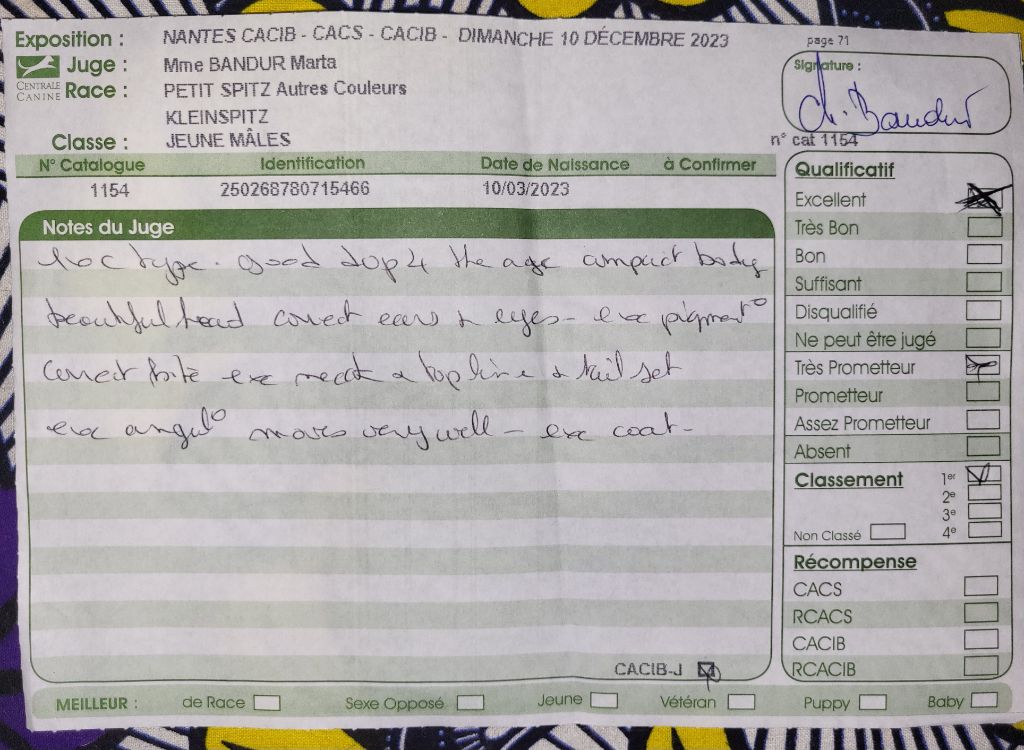 Exposition : NANTES CACIB - CACS - CACIB - DIMANCHE 10 DÉCEMBRE 2023
page 71
Juge : Mme BANDUR Marta
CENTRALE CANINE
Race : PETIT SPITZ Autres Couleurs
KLEINSPITZ
Classe : JEUNE MÂLES
Signature :
M. Bandur
n° cat 1154
N° Catalogue Identification Date de Naissance à Confirmer
1154 250268780715466 10/03/2023
Notes du Juge
type. good the age compact body
beautiful head correct ears & eyes - exc pigment°
correct bite exc neck & topline & tail set
exc angul° moves very well - exc coat -
CACIB-J
Qualificatif
Excellent
Très Bon
Bon
Suffisant
Disqualifié
Ne peut être jugé
Très Prometteur
Prometteur
Assez Prometteur
Absent
Classement 1er
2e
3e
Non Classé 4e
Récompense
CACS
RCACS
CACIB
RCACIB
MEILLEUR : de Race Sexe Opposé Jeune Vétéran Puppy Baby